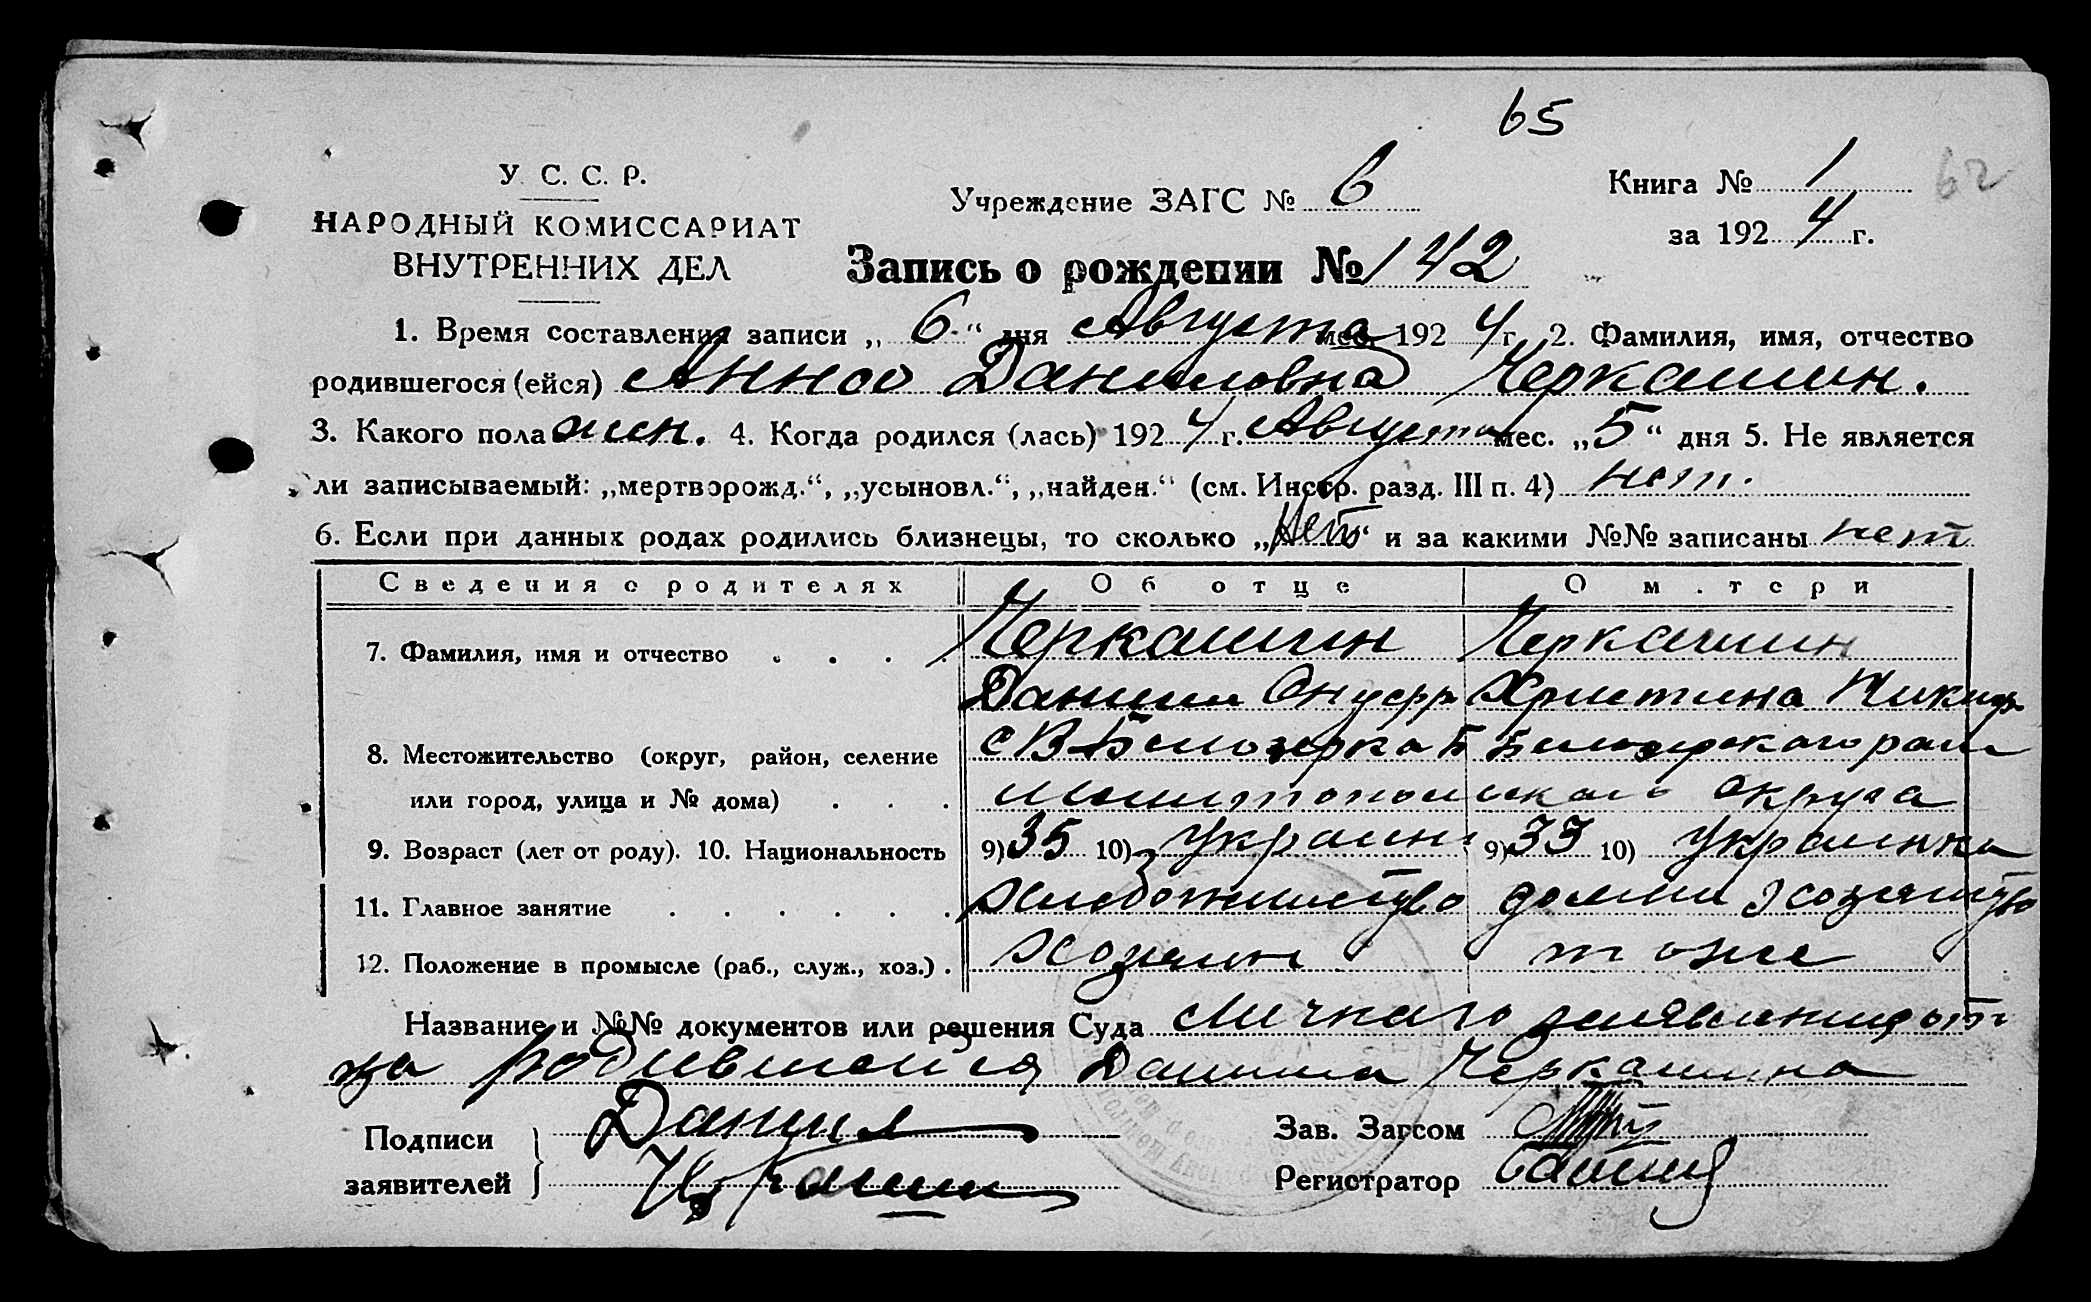 65
У. С. С. Р.
НАРОДНЫЙ КОМИССАРИАТ
ВНУТРЕННИХ ДЕЛ
Учреждение ЗАГС № 6
Книга № 1
62
за 1924 г.
Запись о рождении № 142
1. Время составления записи „6“ дня Августа мес. 1924 г. 2. Фамилия, имя, отчество
родившегося (ейся) Анна Даниловна Черкашин.
3. Какого пола жен. 4. Когда родился (лась) 1924 г. Августа мес. „5“ дня 5. Не является
ли записываемый: „мертворожд.“, „усыновл.“, „найден.“ (см. Инстр. разд. III п. 4) нет.
6. Если при данных родах родились близнецы, то сколько „нет“ и за какими №№ записаны нет
Сведения о родителях Об отце О матери
7. Фамилия, имя и отчество Черкашин Черкашин
Даниил Онуфр Христина Никиф
8. Местожительство (округ, район, селение с В-Белозерка Б Белозерского рай
или город, улица и № дома) Мелитопольского округа
9. Возраст (лет от роду). 10. Национальность 9) 35 10) Украин 9) 33 10) Украинка
11. Главное занятие Хлебопашество домаш хозяйство
12. Положение в промысле (раб., служ., хоз.) Хозяин тоже
Название и №№ документов или решения Суда Личнаго заявления от
ца родившейся Данила Черкашина
Подписи заявителей Данил
Черкашин
Зав. Загсом
Регистратор